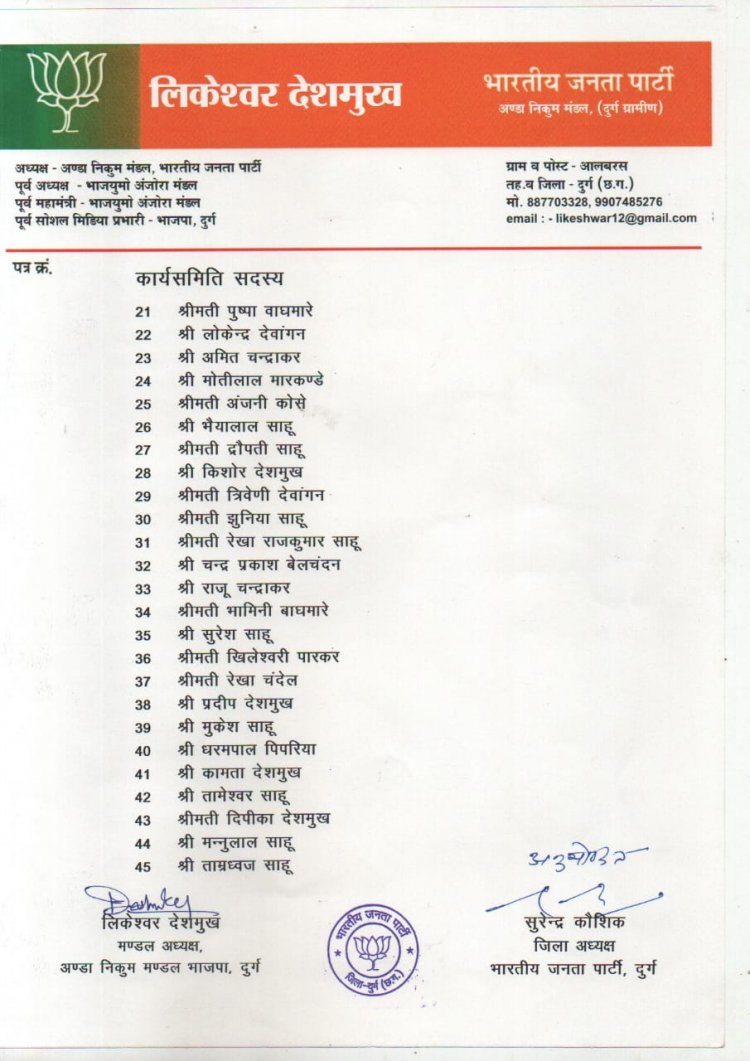 लिकेश्वर देशमुख
भारतीय जनता पार्टी
अण्डा निकुम मंडल, (दुर्ग ग्रामीण)
अध्यक्ष - अण्डा निकुम मंडल, भारतीय जनता पार्टी
पूर्व अध्यक्ष - भाजयुमो अंजोरा मंडल
पूर्व महामंत्री - भाजयुमो अंजोरा मंडल
पूर्व सोशल मिडिया प्रभारी - भाजपा, दुर्ग
ग्राम व पोस्ट - आलबरस
तह.व जिला - दुर्ग (छ.ग.)
मो. 887703328, 9907485276
email : - likeshwar12@gmail.com
पत्र क्रं.
कार्यसमिति सदस्य
21 श्रीमती पुष्पा वाघमारे
22 श्री लोकेन्द्र देवांगन
23 श्री अमित चन्द्राकर
24 श्री मोतीलाल मारकण्डे
25 श्रीमती अंजनी कोसे
26 श्री भैयालाल साहू
27 श्रीमती द्रौपती साहू
28 श्री किशोर देशमुख
29 श्रीमती त्रिवेणी देवांगन
30 श्रीमती झुनिया साहू
31 श्रीमती रेखा राजकुमार साहू
32 श्री चन्द्र प्रकाश बेलचंदन
33 श्री राजू चन्द्राकर
34 श्रीमती भामिनी बाघमारे
35 श्री सुरेश साहू
36 श्रीमती खिलेश्वरी पारकर
37 श्रीमती रेखा चंदेल
38 श्री प्रदीप देशमुख
39 श्री मुकेश साहू
40 श्री धरमपाल पिपरिया
41 श्री कामता देशमुख
42 श्री तामेश्वर साहू
43 श्रीमती दिपीका देशमुख
44 श्री मन्नुलाल साहू
45 श्री ताम्रध्वज साहू
लिकेश्वर देशमुख
मण्डल अध्यक्ष,
अण्डा निकुम मण्डल भाजपा, दुर्ग
भारतीय जनता पार्टी
जिला-दुर्ग (छ.ग.)
अनुमोदित
सुरेन्द्र कौशिक
जिला अध्यक्ष
भारतीय जनता पार्टी, दुर्ग